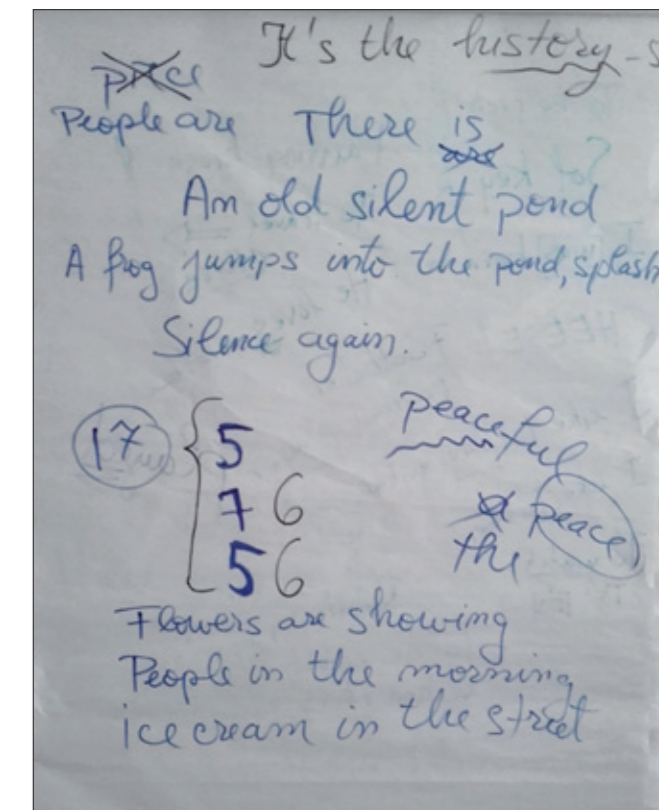 It's the history - s
People are There is
An old silent pond
A frog jumps into the pond, splash
Silence again.
peaceful
17 5
7 6 a peace
5 6 the
Flowers are showing
People in the morning
ice cream in the street